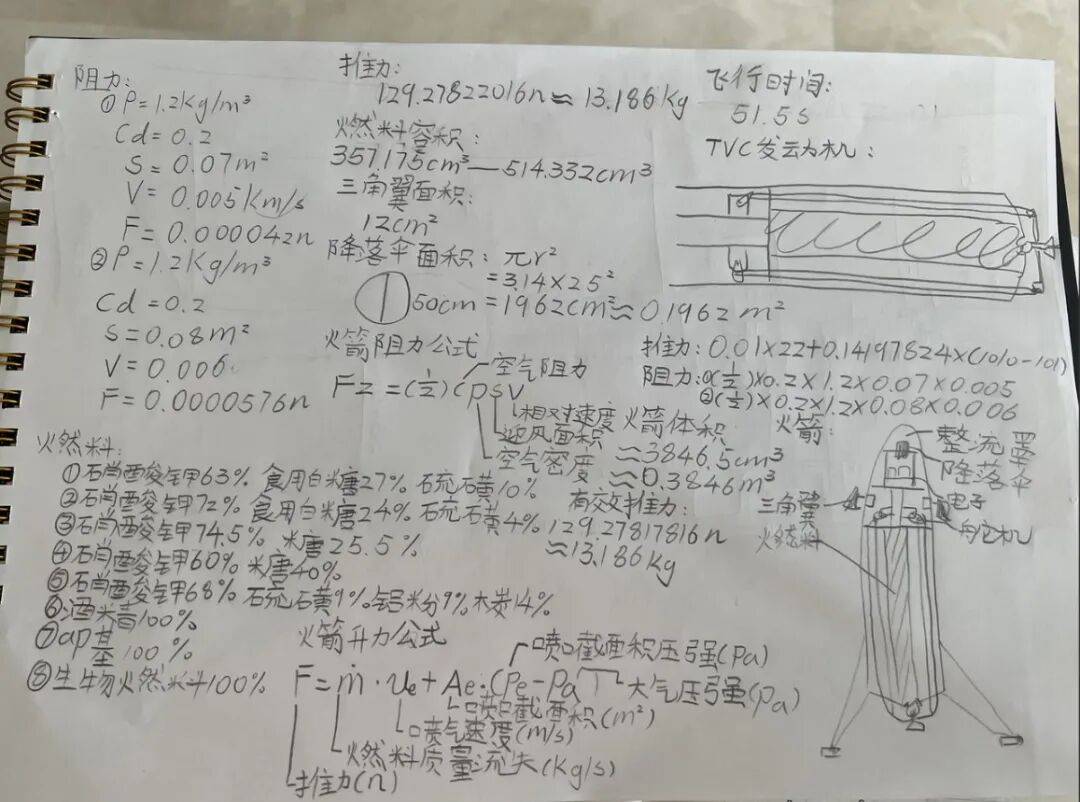 阻力:
①P=1.2Kg/m³
Cd=0.2
S=0.07m²
V=0.005Km/s
F=0.000042n
②P=1.2Kg/m³
Cd=0.2
S=0.08m²
V=0.006
F=0.0000576n
推力:
129.27822016n≈13.186Kg
燃料容积:
357.175cm³—514.332cm³
三角翼面积:
12cm²
降落伞面积:πr²
=3.14×25²
50cm=1962cm²≈0.1962m²
飞行时间:
51.5s
TVC发动机:
火箭阻力公式
空气阻力
Fz=(½)Cρsv
相对速度
迎风面积
空气密度
推力:0.01×22+0.14197824×(1010-101)
阻力:①(½)×0.2×1.2×0.07×0.005
②(½)×0.2×1.2×0.08×0.006
火箭体积
≈3846.5cm³
≈0.3846m³
有效推力:
129.27817816n
≈13.186Kg
火箭:
整流罩
降落伞
电子
舵机
三角翼
燃料
燃料:
①硝酸钾63% 食用白糖27% 硫磺10%
②硝酸钾72% 食用白糖24% 硫磺4%
③硝酸钾74.5% 糖25.5%
④硝酸钾60% 糖40%
⑤硝酸钾68% 硫磺9% 铝粉9% 木炭14%
⑥酒精100%
⑦ap基100%
⑧生物燃料100%
火箭升力公式
F=ṁ·Ue+Ae·(Pe-Pa)
喷口截面积压强(Pa)
大气压强(pa)
喷口截面积(m²)
喷气速度(m/s)
燃料质量流失(Kg/s)
推力(n)